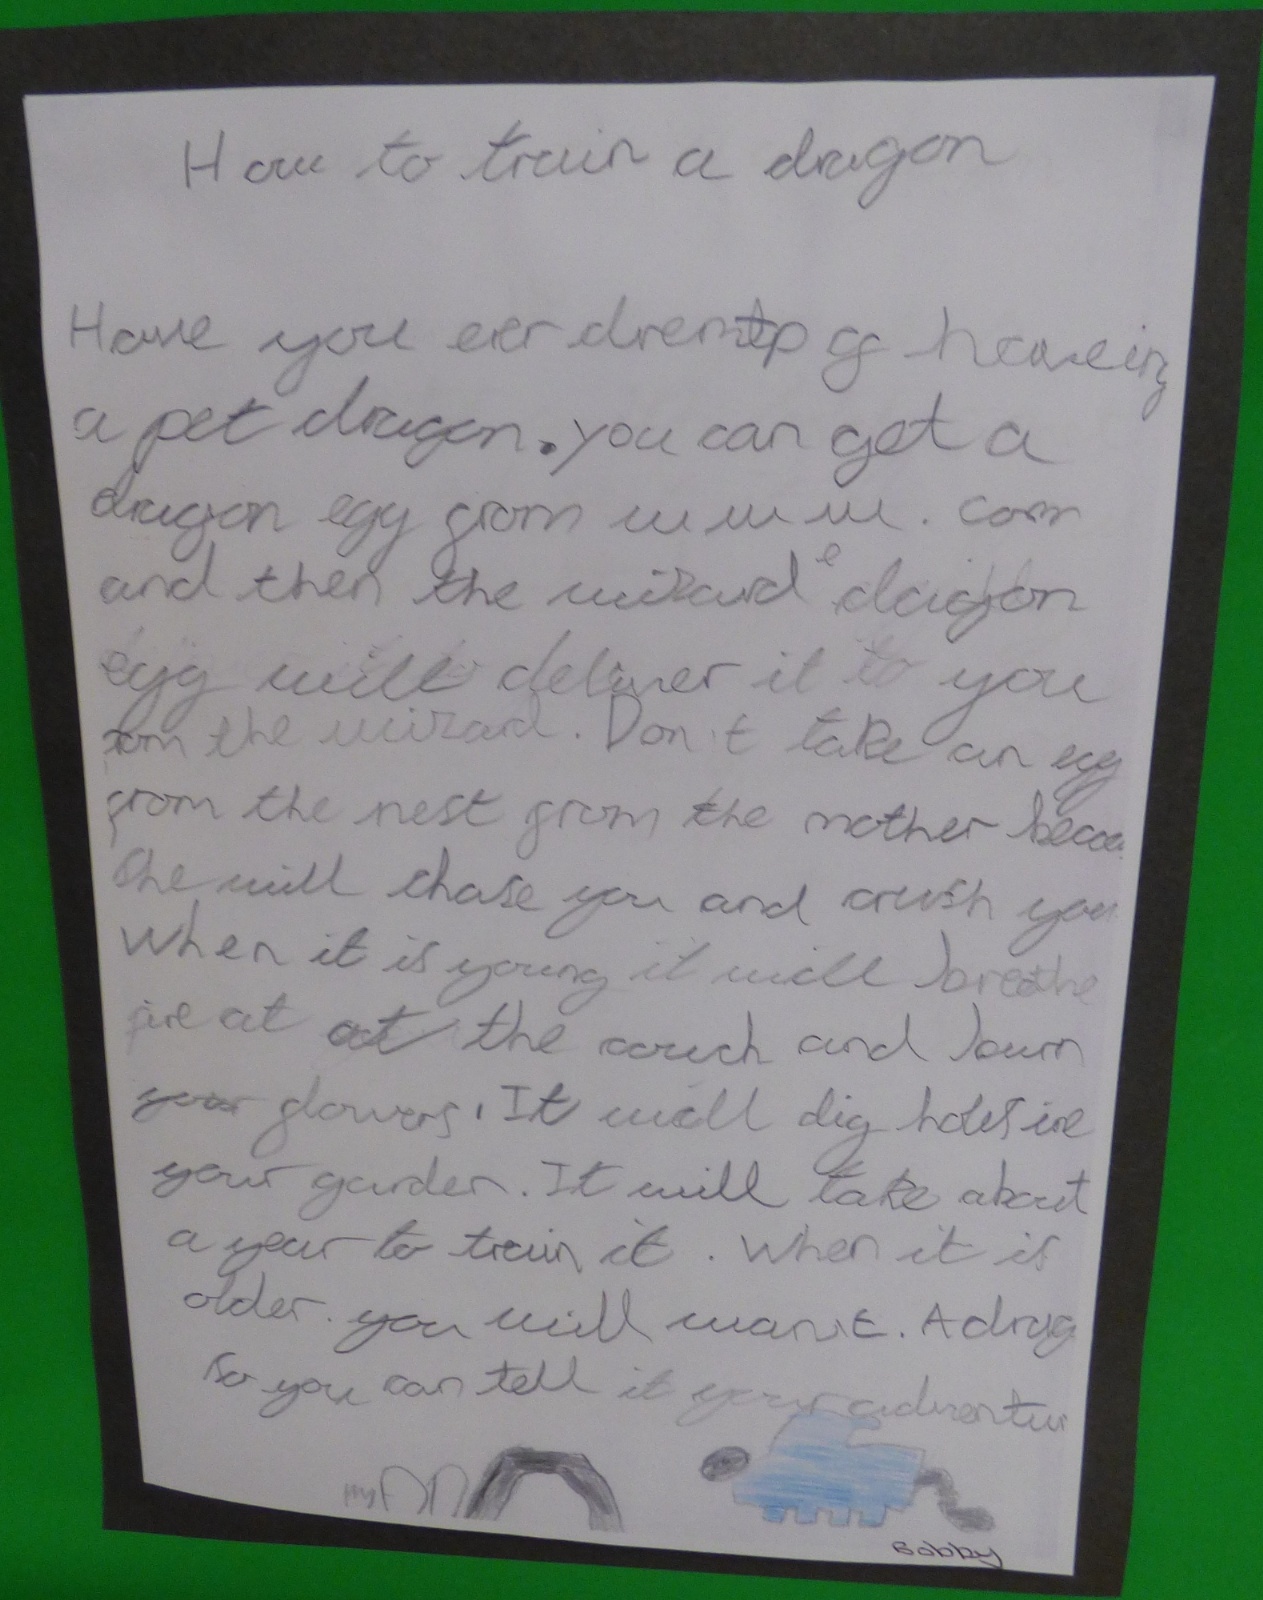 How to train a dragon
Have you ever dremtp of haveing
a pet dragon. you can get a
dragon egg from www. com
and then the wizard e dragon
egg will deliver it to you
from the wizard. Don't take an egg
from the nest from the mother becau
She will chase you and crush you
When it is young it will breathe
fire at at the couch and burn
your flowers. It will dig holes ine
your garden. It will take about
a year to train it. When it is
older. you will want it. A drag
So you can tell it your adventur
my
Bobby